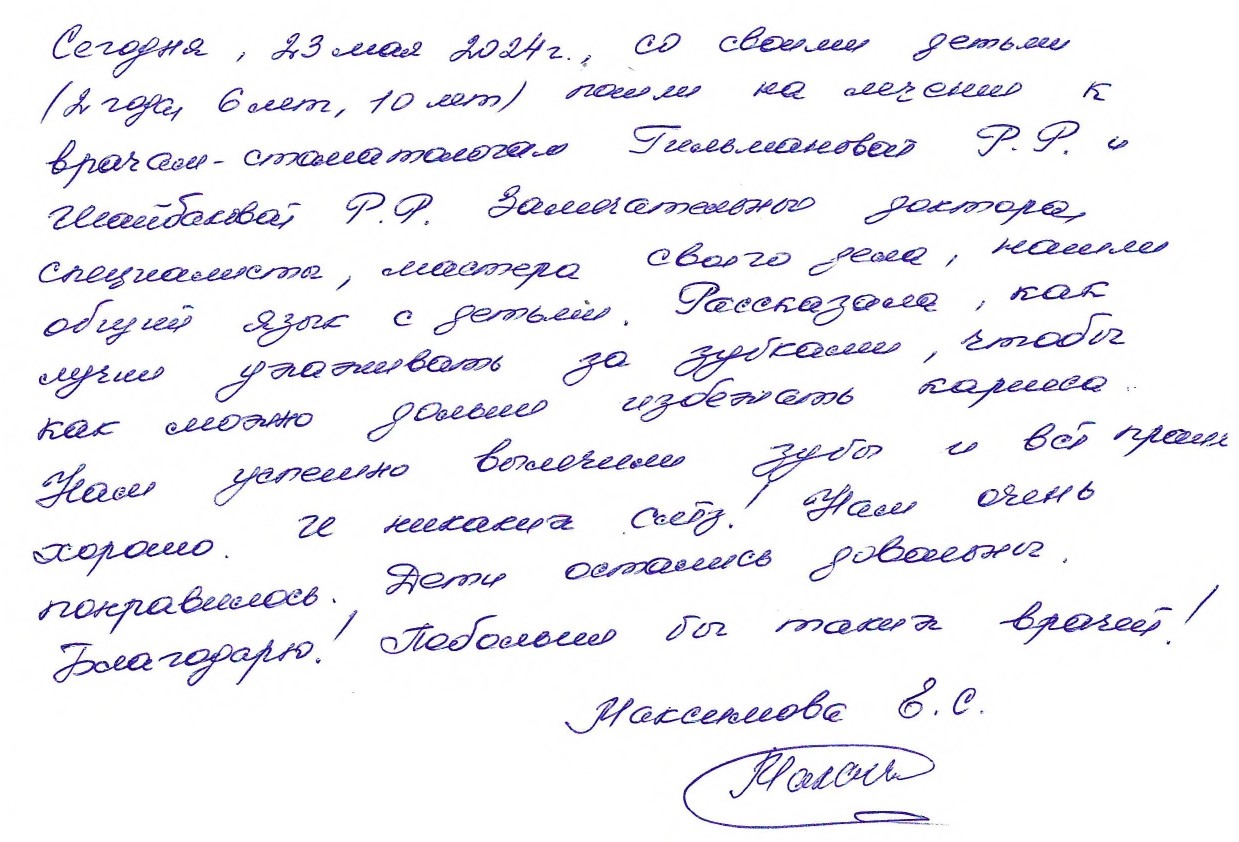 Сегодня, 23 мая 2024г., со своими детьми
(2 года, 6 лет, 10 лет) пошли на лечение к
врачам-стоматологам Гильмановой Р.Р. и
Шайбаковой Р.Р. Замечательные доктора,
специалисты, мастера своего дела, нашли
общий язык с детьми. Рассказала, как
лучше ухаживать за зубками, чтобы
как можно дольше избежать кариеса.
Нам успешно вылечили зубы и всё прошло
хорошо. И никаких слёз! Нам очень
понравилось. Дети остались довольны.
Благодарю! Побольше бы таких врачей!
Максимова Е.С.